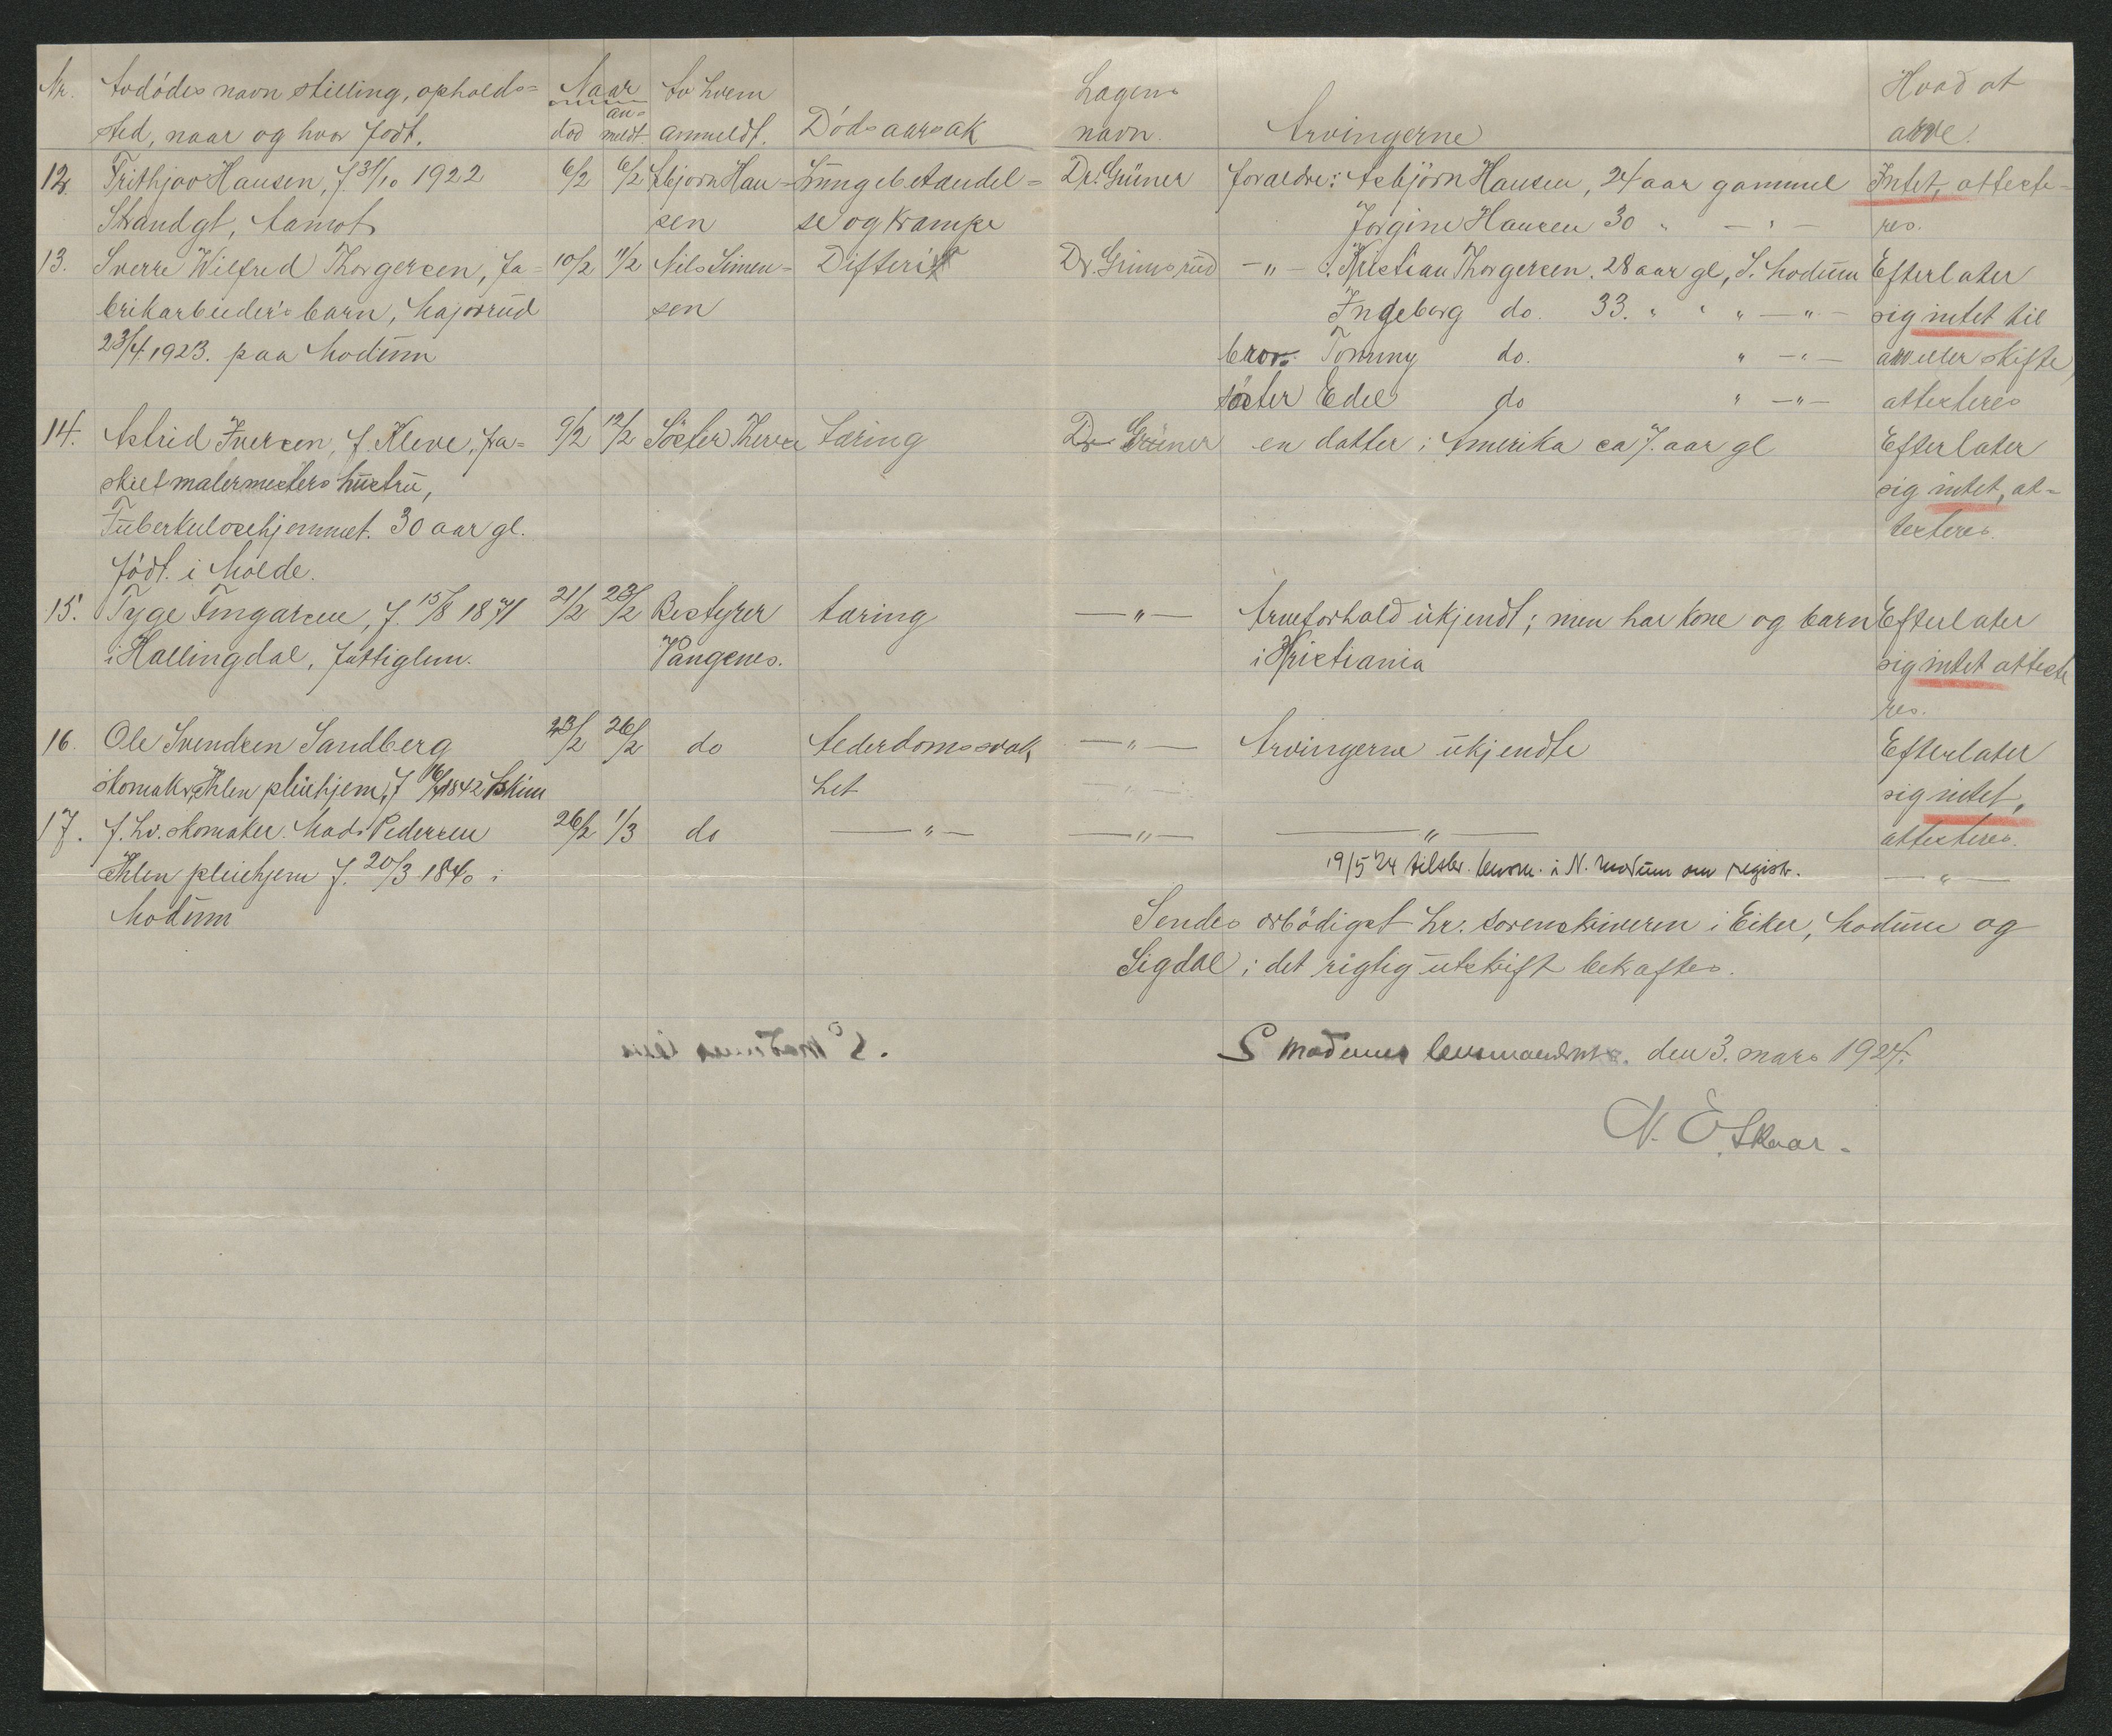 Nr. Avdödes navn stilling, opholds= Naar Av hvem Lægens Hvad at
sted, naar og hvor født. død an=meldt anmeldt. Dødsaarsak navn. Arvingerne arve.
12. Frithjov Hansen, f 31/10 1922 6/2 6/2 Asbjørn Han= Lungebetændel= Dr. Grüner Foraeldre: Asbjörn Hansen, 24 aar gammel Intet, atteste=
Strandgt, Aamot sen se og Krampe Jorgine Hansen 30 " — " — res.
13. Sverre Wilfred Thorgersen, fa= 10/2 11/2 Nils Simen= Difteri Dr. Grimsrud —"— : Kristian Thorgersen. 28 aar gl, S. Modum Efterlater
brikarbeider's barn, Kajorrud sen Ingeborg do. 33. " " " —"— sig intet til
23/4 1923. paa Modum bror: Tommy do. " —"— arv eller skifte,
söster Edel do " —"— attesteres
14. Astrid Iversen, f. Kleve, fra= 9/2 12/2 Söster Therese tæring Dr. Grüner en datter i Amerika ca 7. aar gl Efterlater
skilt malermesters hustru, sig intet, at=
Tuberkulosehjemmet. 30 aar gl. testeres.
född. i Molde.
15. Tyge Fingarsen, f. 15/8 1871 21/2 23/2 Bestyrer tæring —"— Arveforhold ukjendt; men har kone og barn Efterlater
i Hallingdal, fattiglem. Vangenes. i Kristiania sig intet atteste
res.
16. Ole Svendsen Sandberg 23/2 26/2 do Alderdomssvak —"— Arvingerne ukjendte Efterlater
skomaker, Ahlen pleiehjem, f 16/4 1842 Askim het sig intet,
17. f. hv. skomaker Mads Pedersen 26/2 1/3 do —"— —"— —"— attesteres.
Ahlen pleiehjem f. 20/3 1840 i 19/5 24 tilskr. lensm. i N. Modum om registr. —"—
Modum Sendes ærbödigst hr. sorenskriveren i Eiker, Modum og
Sigdal i det rigtig utskrift bekræftes.
S Modums lensmandsk. den 3. mars 1924.
N. E. Skaar.